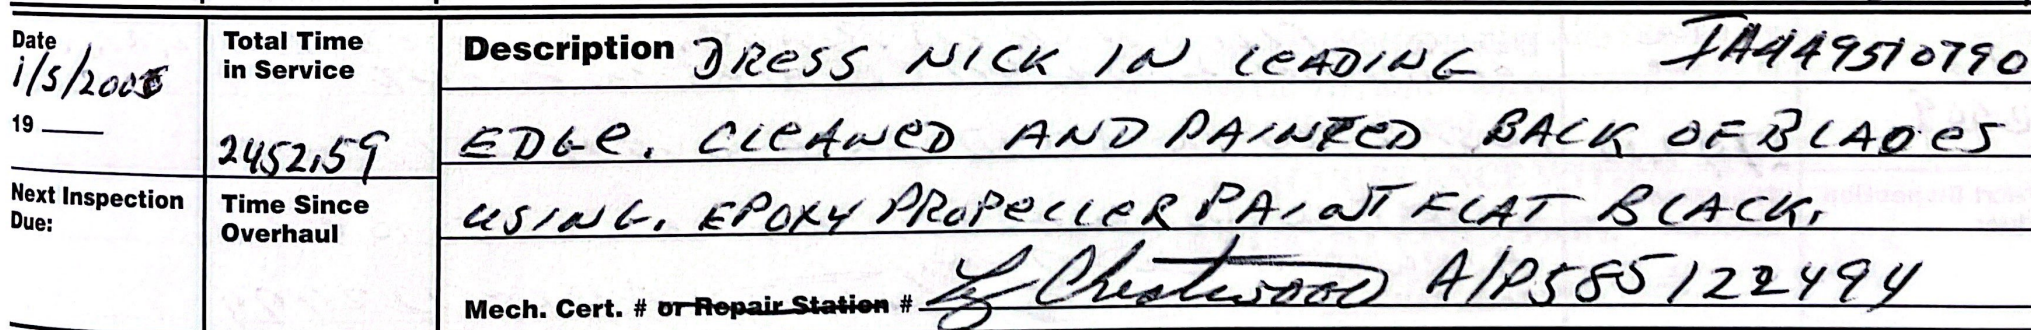 Date
1/5/2005
19
Next Inspection
Due:
Total Time
in Service
2452.59
Time Since
Overhaul
Description DRESS NICK IN LEADING IA449510790
EDGE. CLEANED AND PAINTED BACK OF BLADES
USING. EPOXY PROPELLER PAINT FLAT BLACK.
Mech. Cert. # or Repair Station # Chestwood A/P585122494